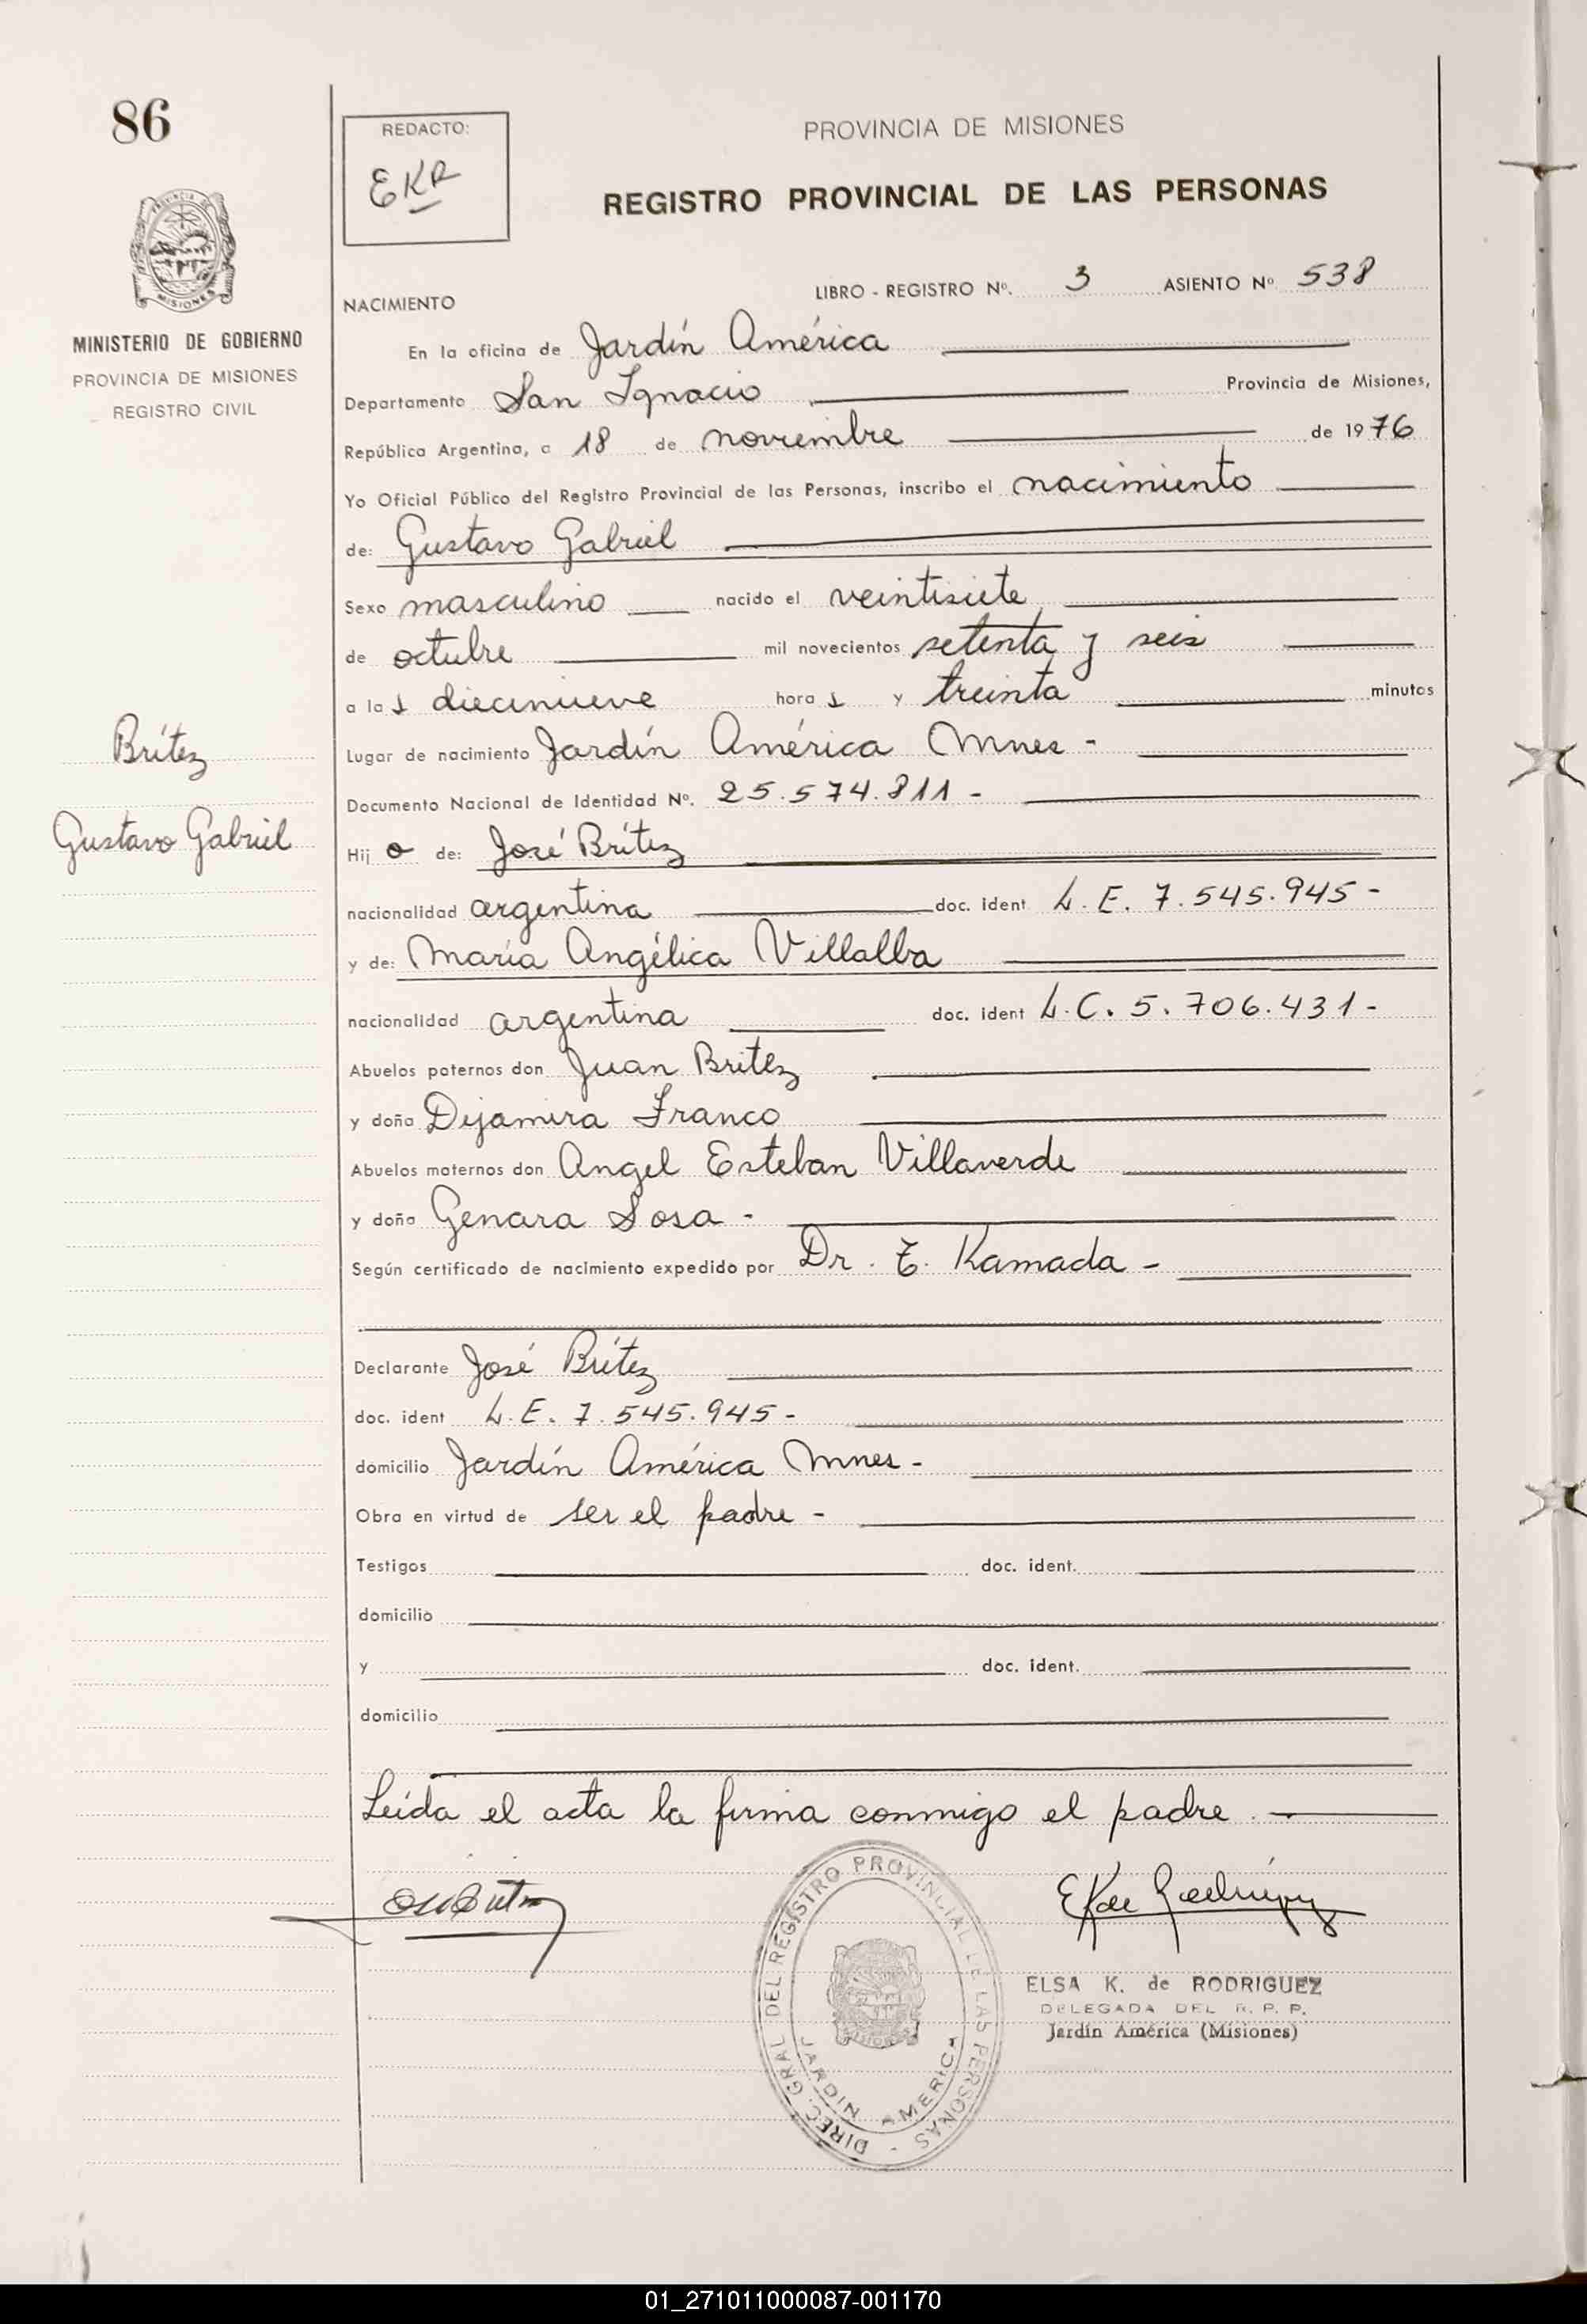 86
REDACTO:
EKR
PROVINCIA DE MISIONES
REGISTRO PROVINCIAL DE LAS PERSONAS
MINISTERIO DE GOBIERNO
PROVINCIA DE MISIONES
REGISTRO CIVIL
NACIMIENTO
LIBRO - REGISTRO Nº. 3 ASIENTO Nº 538
En la oficina de Jardín América
Departamento San Ignacio Provincia de Misiones,
República Argentina, a 18 de noviembre de 1976
Yo Oficial Público del Registro Provincial de las Personas, inscribo el nacimiento
de: Gustavo Gabriel
Sexo masculino nacido el veintisiete
de octubre mil novecientos setenta y seis
a las diecinueve horas y treinta minutos
Lugar de nacimiento Jardín América Mnes -
Documento Nacional de Identidad Nº. 25.574.811 -
Brítez
Gustavo Gabriel
Hijo de: José Brítez
nacionalidad argentina doc. ident L.E. 7.545.945 -
y de: María Angélica Villalba
nacionalidad argentina doc. ident L.C. 5.706.431 -
Abuelos paternos don Juan Britez
y doña Dijamira Franco
Abuelos maternos don Angel Esteban Villaverde
y doña Genara Sosa -
Según certificado de nacimiento expedido por Dr. E. Kamada -
Declarante José Brítez
doc. ident L.E. 7.545.945 -
domicilio Jardín América Mnes -
Obra en virtud de ser el padre -
Testigos doc. ident.
domicilio
y doc. ident.
domicilio
Leída el acta la firma conmigo el padre. -
EK de Rodríguez
DIREC. GRAL DEL REGISTRO PROVINCIAL DE LAS PERSONAS -
JARDIN AMERICA
MISIONES
ELSA K. de RODRIGUEZ
DELEGADA DEL R. P. P.
Jardín América (Misiones)
01_271011000087-001170